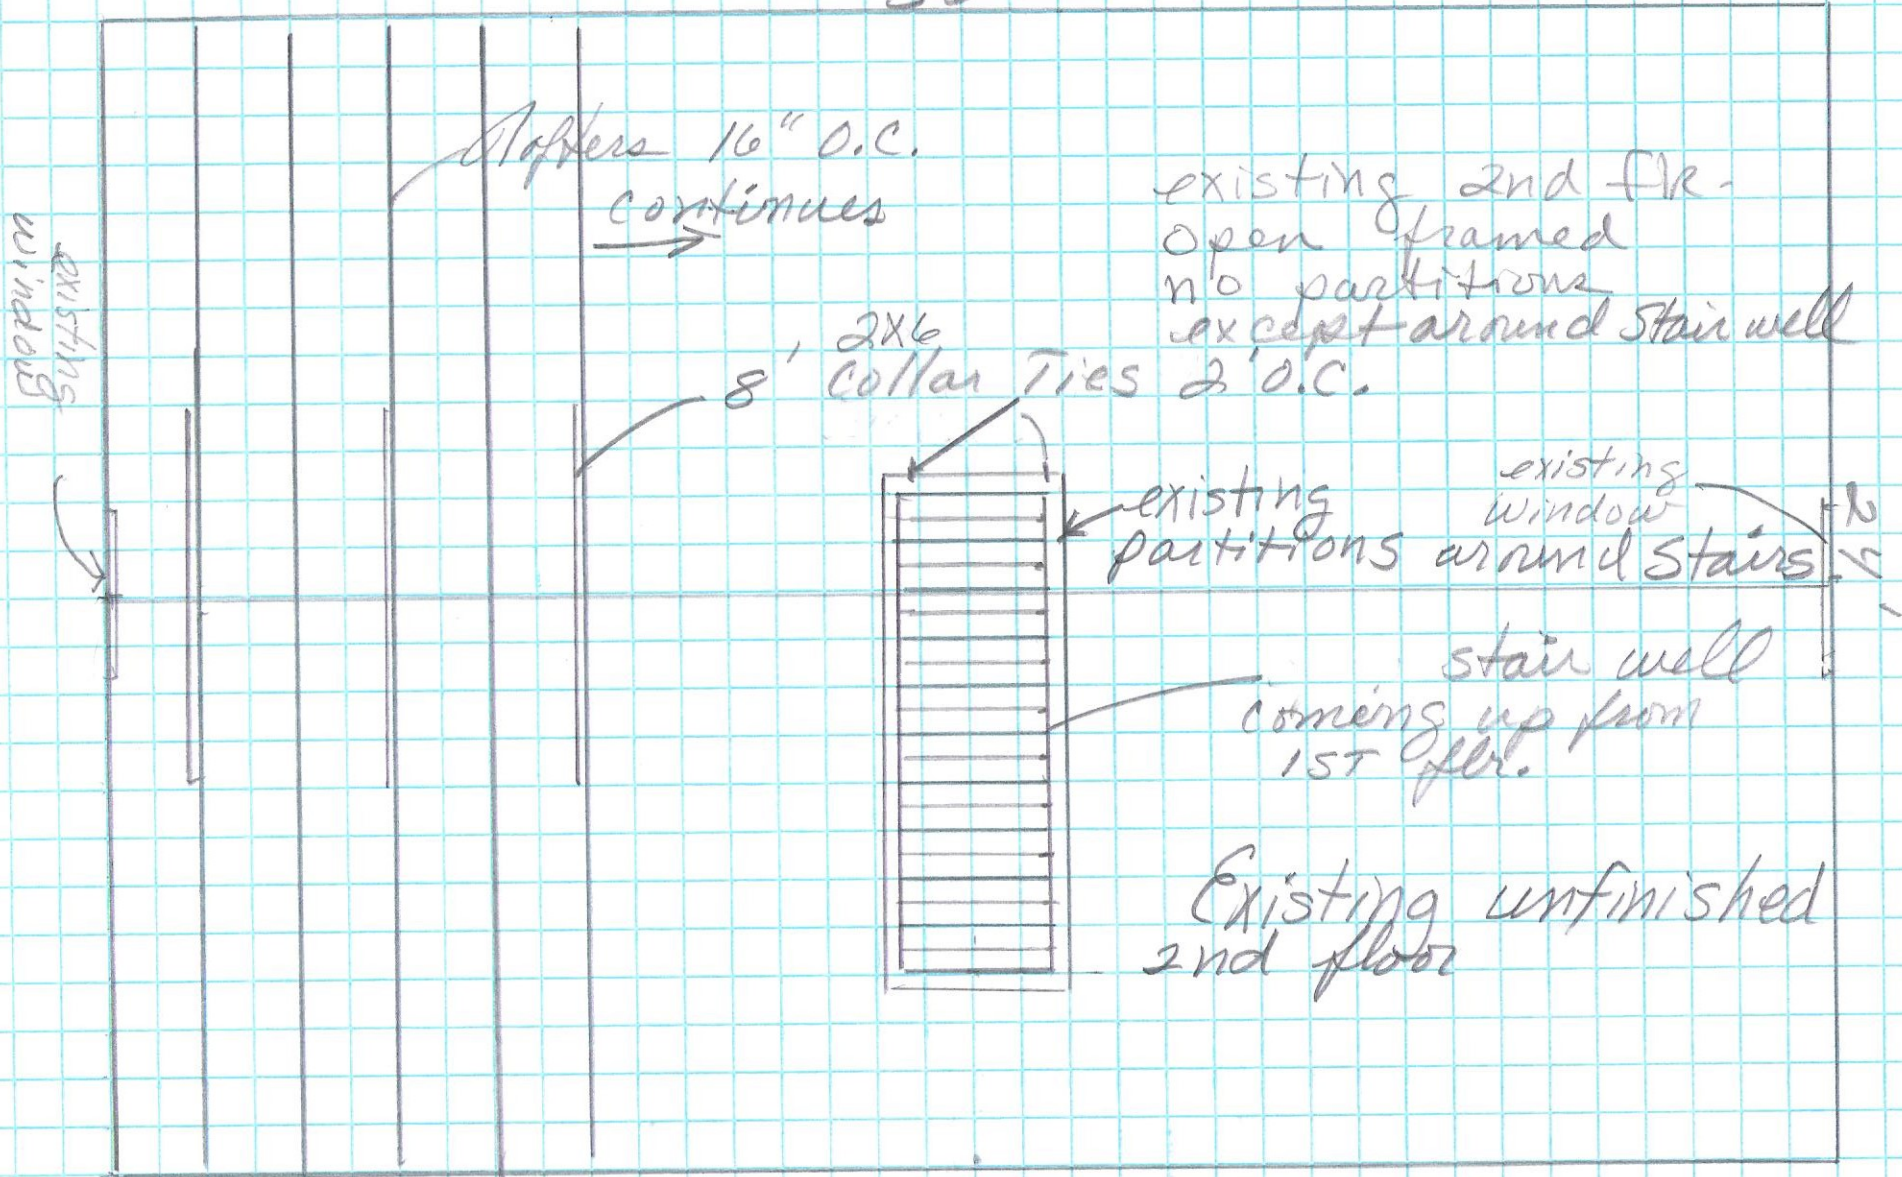 existing
window
Rafters 16" O.C.
continues
existing 2nd flr-
open framed
no partitions
except around Stair well
8', 2x6
Collar Ties 2' O.C.
existing
partitions around Stairs
existing
window
24'
stair well
coming up from
1ST flr.
Existing unfinished
2nd floor